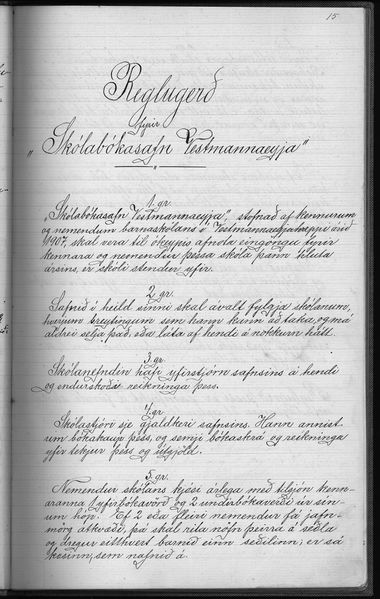 15
Reglugerð
fyrir
„Skólabókasafn Vestmannaeyja“
1. gr.
„Skólabókasafn Vestmannaeyja“, stofnað af kennurum
og nemendum barnaskólans í Vestmannaeyjahreppi árið
1907, skal vera til ókeypis afnota eingöngu fyrir
kennara og nemendur þessa skóla þann tíluta
ársins, er skóli stendur yfir.
2. gr.
Safnið í heild sinni skal ávalt fylgja skólanum,
hverjum breytingum sem hann kann að taka, og má
aldrei selja það, eða láta af hendi á nokkurn hátt.
3. gr.
Skólanefndin hafi yfirstjórn safnsins á hendi
og endurskoði reikninga þess.
4. gr.
Skólastjóri sje gjaldkeri safnsins. Hann annist
um bókakaup þess, og semji bókaskrá og reikninga
yfir tekjur þess og útgjöld.
5. gr.
Nemendur skólans kjósi árlega með tilsjón kenn-
aranna 1 yfirbókavörð og 2 undirbókaverði úr sín-
um hóp. Ef 2 eða fleiri nemendur fá jafn-
mörg atkvæði, þá skal rita nöfn þeirra á seðla
og dregur eitthvert barnið einn seðilinn; er sá
kosinn, sem nafnið á